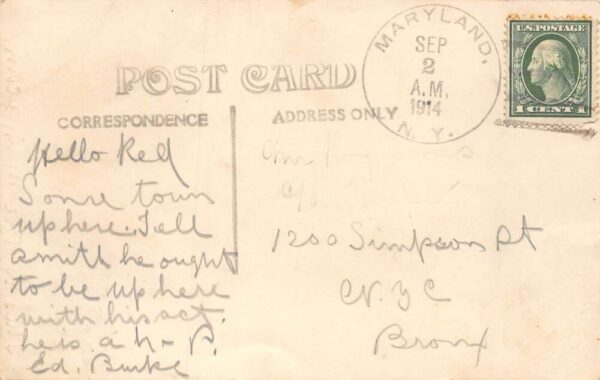 POST CARD
CORRESPONDENCE
ADDRESS ONLY
MARYLAND,
SEP
2
A.M.
1914
N.Y.
U.S. POSTAGE
1 CENT 1
Hello Red
Some town
up here. Tell
Smith he ought
to be up here
with his act.
he is a h-
Ed. Burke
c/o
1200 Simpson St
N.Y.C
Bronx